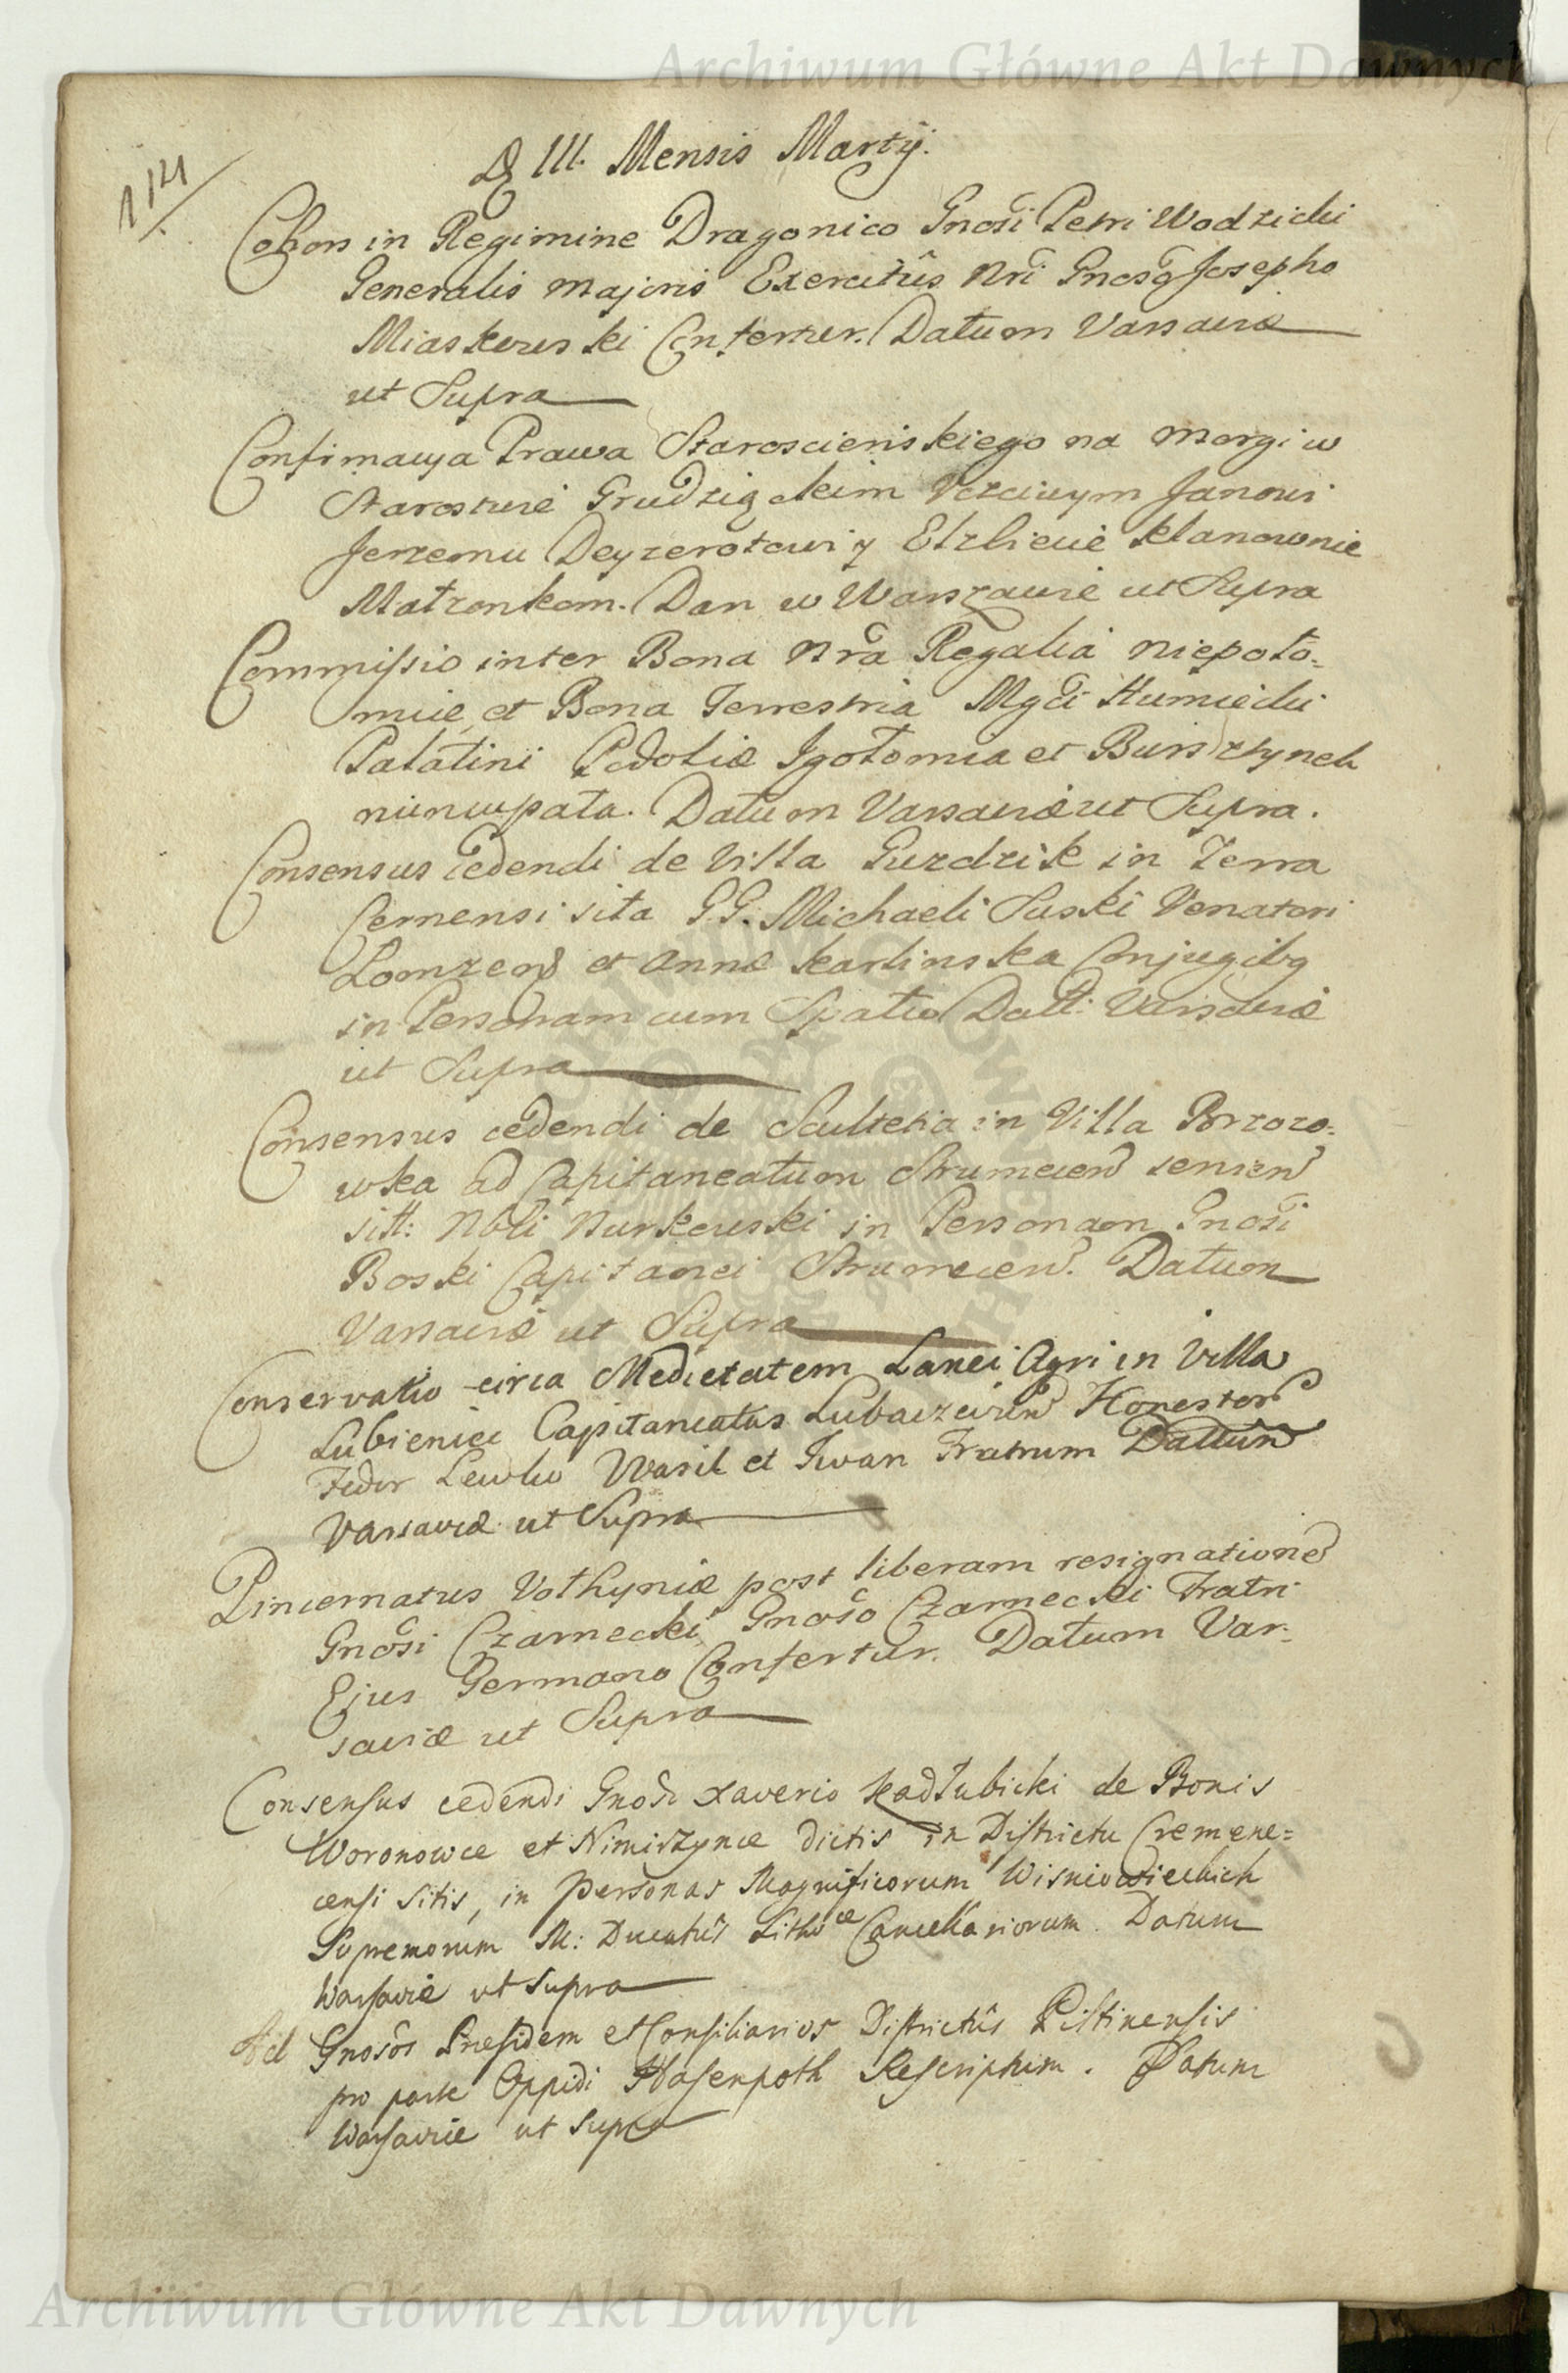 Archiwum Główne Akt Dawnych
D III. Mensis Martÿ.
114
Cohors in Regimine Dragonico Gnosi Petri Wodzicki
Generalis Majoris Exercitûs Nri Gnoso Josepho
Miaskowski Confertur. Datum Varsaviæ
ut Supra
Confirmacya Prawa Staroscienskiego na Morgi w
Starostwie Grudziąckim Vczciwym Janowi
Jerzemu Deyzerotowi y Elzbiecie Klanownie
Małzonkom. Dan w Warszawie ut Supra
Commissio inter Bona Nra Regalia Niepoło-
mice et Bona Terrestria Mgci Humiecki
Palatini Podoliæ Igołomia et
nuncupata. Datum Varsaviæ ut Supra.
Consensus cedendi de Villa Guzdzik in Terra
Cernensi sita G.G. Michaeli Suski Venatori
Lomzen et Annæ Karlinska Conjugibq
in Personam cum Spatio Datt: Varsaviæ
ut Supra
Consensus cedendi de Scultetia in Villa Brzozo-
wka ad Capitaneatum Strumecen
sitt: Nbli Nurkowski in Personam Gnosi
Boski Capitanei Strumecen. Datum
Varsaviæ ut Supra
Conservatio circa Medietatem Lanei Agri in Villa
Lubienice Capitaneatus Honestor
Fedor Lewko Wasil et Iwan Fratrum Dattum
Varsaviæ ut Supra
Pincernatus Volhyniæ post liberam resignatione
Gnosi Czarnecki Gnoso Czarnecki Fratri
Ejus Germano Confertur. Datum Var-
saviæ ut Supra
Consensus cedendi Gnoso Xaverio Kadłubicki de Bonis
Woronowce et Nimirzynce dictis in Districtu Cremene=
censi Sitis, in Personas Magnificorum Wisniowieckich
Supremorum M: Ducatûs Lithvæ Cancellariorum. Datum
Warsaviæ ut Supra
Ad Gnosos Præsidem et Consiliarios Districtûs Piltinensis
pro parte Oppidi Hasenpoth Rescriptum. Datum
Warsaviæ ut Supra
Archiwum Główne Akt Dawnych